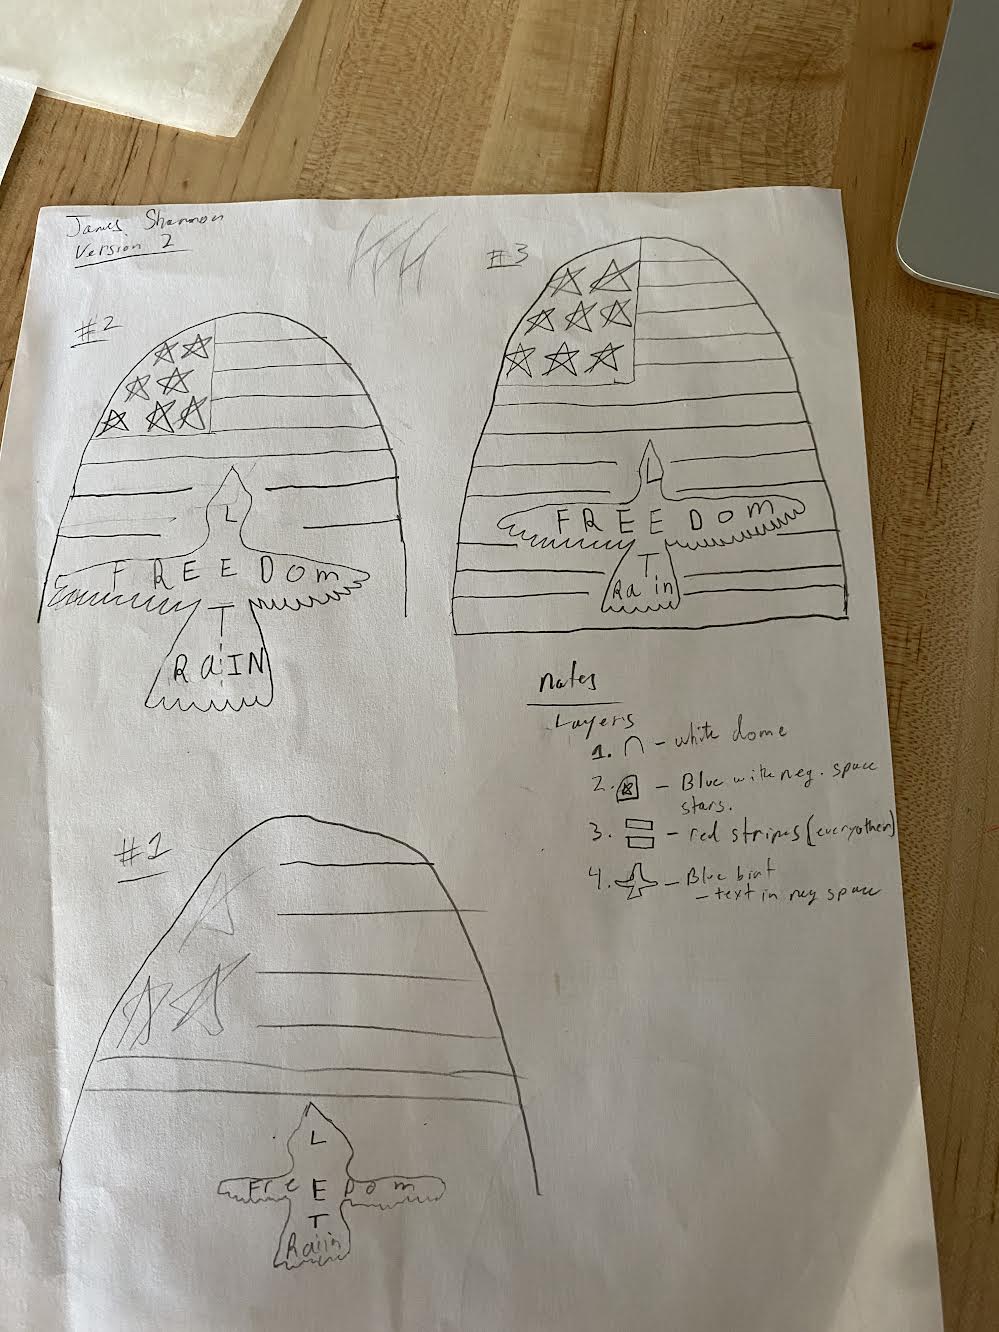 James Shannon
Version 2
#2
L
FREEDOM
T
RaIN
#3
L
FREEDOM
T
Rain
Notes
Layers
1. - white dome
2. - Blue with neg. space
stars.
3. - red stripes (everyother)
4. - Blue
- text in neg space
#1
L
Fre E Dom
T
Raiin